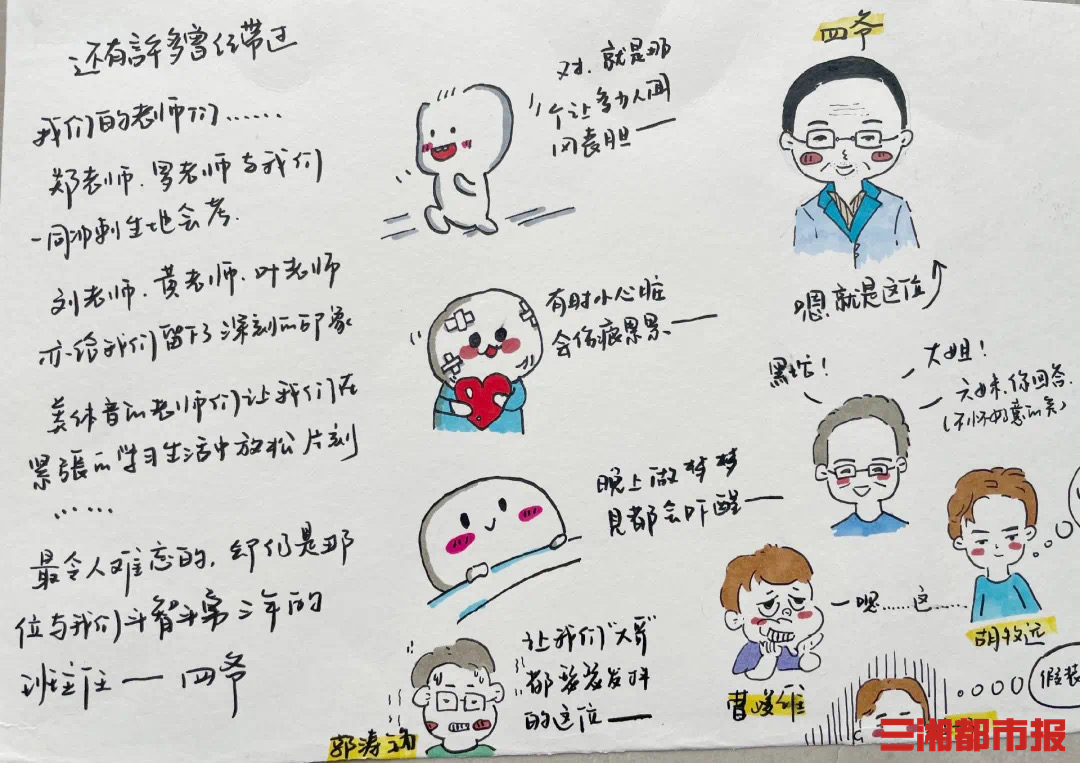 还有許多曾任带过
我们的老师们……
郑老师.罗老师与我们
一同冲刺生地会考.
刘老师.黄老师.叶老师
亦给我们留下了深刻的印象
美体音的老师们让我们在
紧張的学习生活中放松片刻
……
最令人难忘的,却仍是那
位与我们斗智斗勇三年的
班主任——四爷
对.就是那
个让多少人闻
风丧胆——
有时小心脏
会伤痕累累——
晚上做梦梦
见都会吓醒——
让我们"大哥"
都瑟瑟发抖
的这位——
四爷
嗯.就是这位
大姐!
六妹.你回答.
(不怀好意的笑)
嗯……这……
胡牧远
假装
三湘都市报